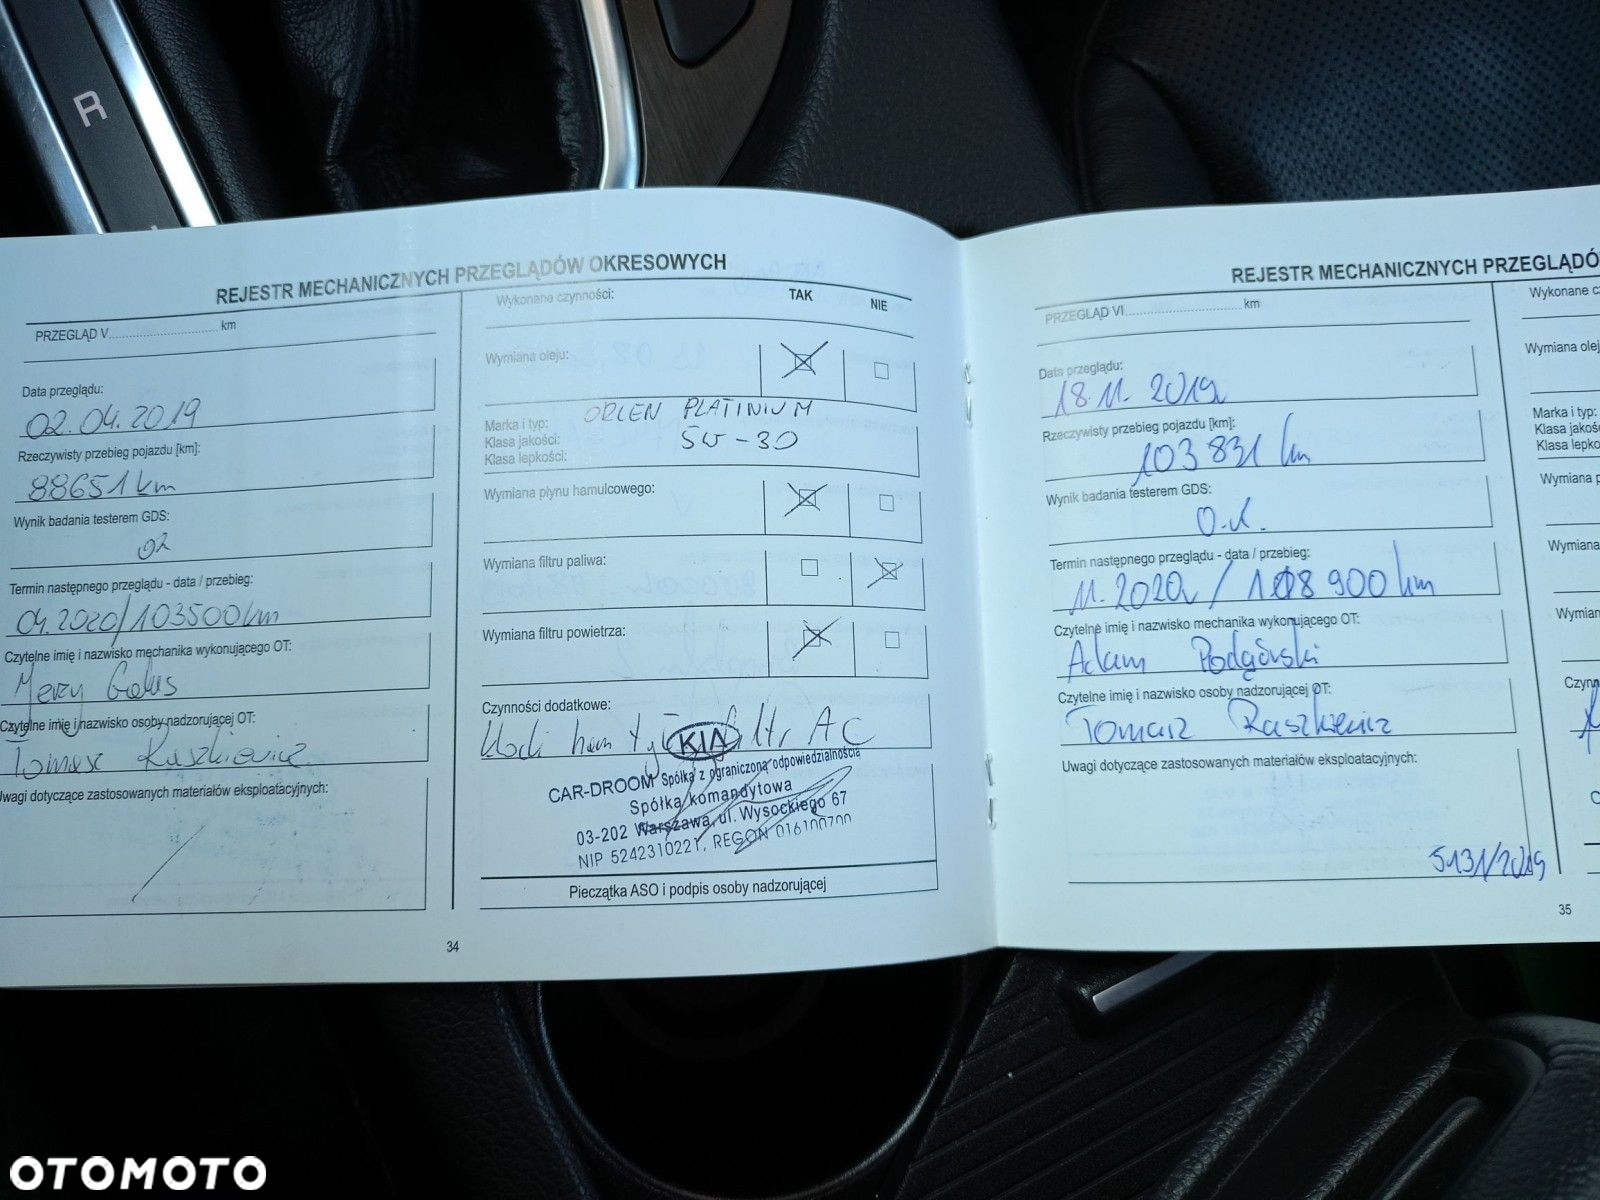 R
REJESTR MECHANICZNYCH PRZEGLĄDÓW OKRESOWYCH
PRZEGLĄD V.............................. km
Data przeglądu:
02.04.2019
Rzeczywisty przebieg pojazdu [km]:
88651 km
Wynik badania testerem GDS:
Termin następnego przeglądu - data / przebieg:
04.2020/103500km
Czytelne imię i nazwisko mechanika wykonującego OT:
Czytelne imię i nazwisko osoby nadzorującej OT:
Tomasz Raszkiewicz
Uwagi dotyczące zastosowanych materiałów eksploatacyjnych:
Wykonane czynności: TAK NIE
Wymiana oleju:
Marka i typ: ORLEN PLATINIUM
Klasa jakości: 5W-30
Klasa lepkości:
Wymiana płynu hamulcowego:
Wymiana filtru paliwa:
Wymiana filtru powietrza:
Czynności dodatkowe:
klocki ham tył filtr AC
KIA
CAR-DROOM Spółka z ograniczoną odpowiedzialnością
Spółka komandytowa
03-202 Warszawa, ul. Wysockiego 67
NIP 5242310221, REGON 016100700
Pieczątka ASO i podpis osoby nadzorującej
34
REJESTR MECHANICZNYCH PRZEGLĄDÓ
PRZEGLĄD VI.............................. km
Data przeglądu:
18.11.2019r
Rzeczywisty przebieg pojazdu [km]:
103 831 km
Wynik badania testerem GDS:
O.K.
Termin następnego przeglądu - data / przebieg:
11.2020r / 118 900 km
Czytelne imię i nazwisko mechanika wykonującego OT:
Adam Podgórski
Czytelne imię i nazwisko osoby nadzorującej OT:
Tomasz Raszkiewicz
Uwagi dotyczące zastosowanych materiałów eksploatacyjnych:
5131/2019
Wykonane cz
Wymiana olej
Marka i typ:
Klasa jakoś
Klasa lepko
Wymiana p
Wymiana
Wymian
Czynn
35
OTOMOTO